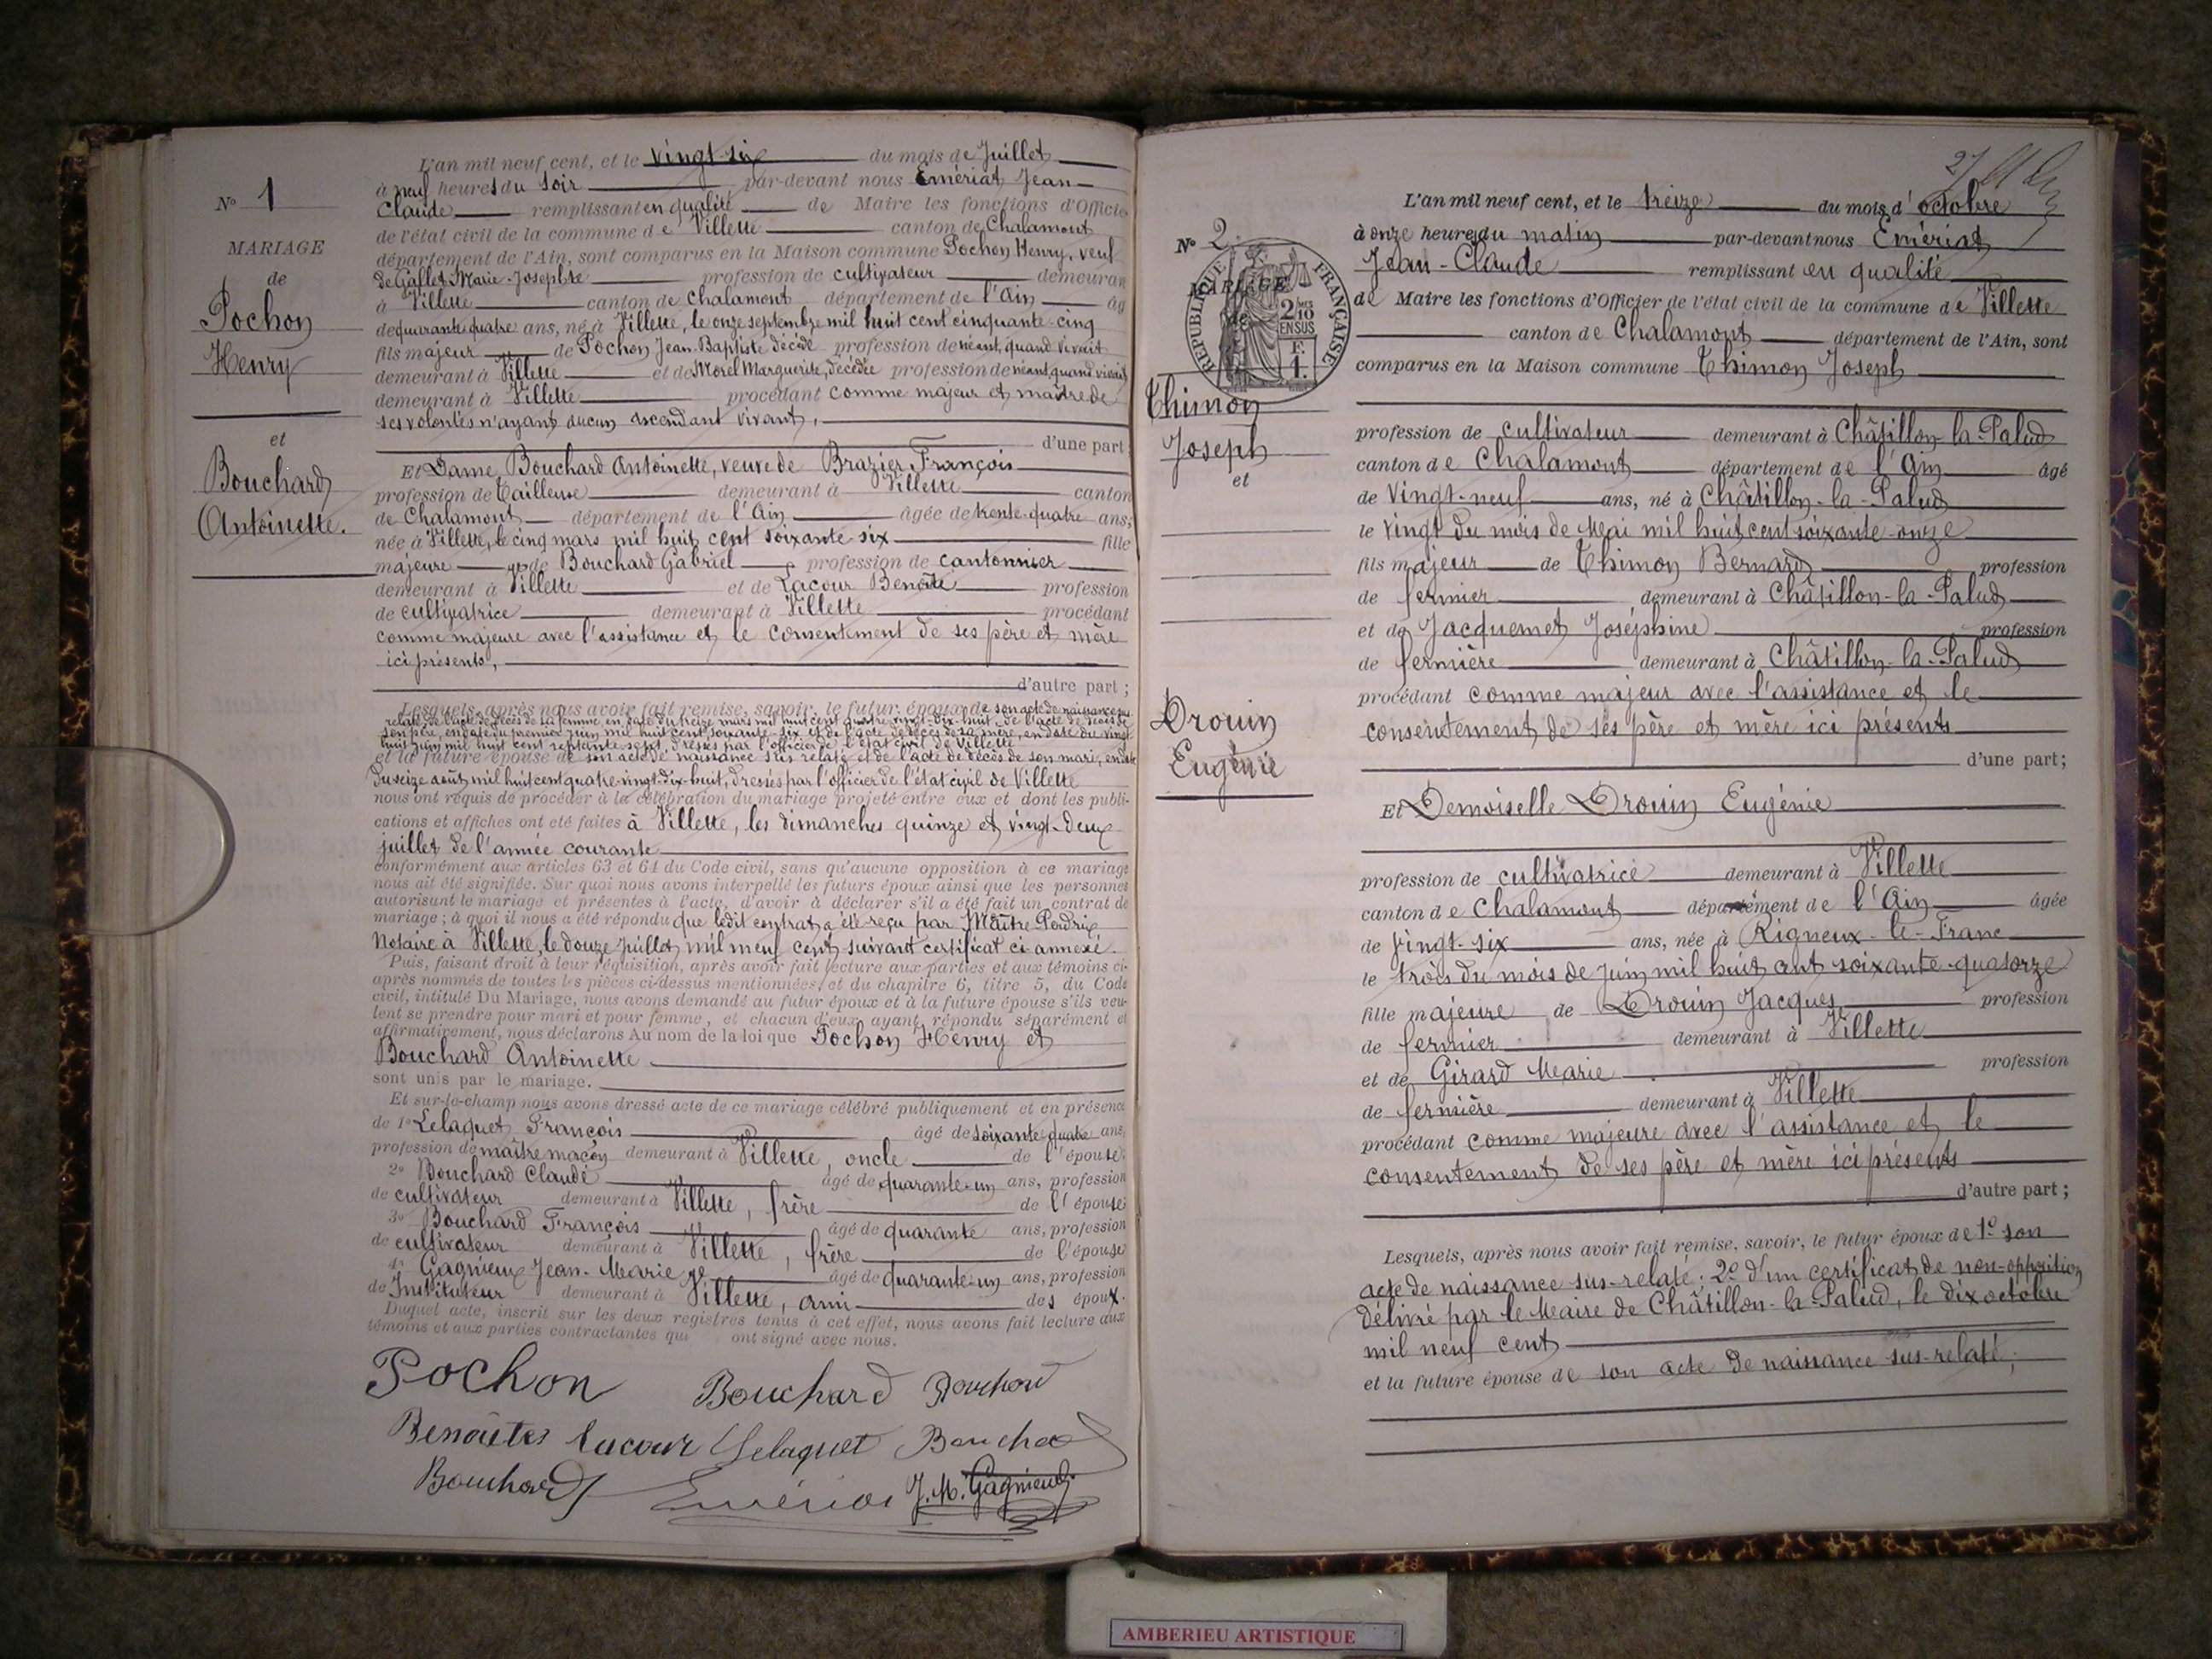 N° 1
MARIAGE
de
Pochon
Henry
et
Bouchard
Antoinette.
L'an mil neuf cent, et le vingt-six du mois de Juillet
à neuf heures du soir par-devant nous Emériat Jean-
Claude remplissant en qualité de Maire les fonctions d'Officier
de l'état civil de la commune de Villette canton de Chalamont
département de l'Ain, sont comparus en la Maison commune Pochon Henry, veuf
de Gallet Marie-Josephte profession de cultivateur demeurant
à Villette canton de Chalamont département de l'Ain âgé
de quarante quatre ans, né à Villette, le onze septembre mil huit cent cinquante-cinq
fils majeur de Pochon Jean-Baptiste décédé profession de néant, quand vivait
demeurant à Villette et de Morel Marguerite, décédée profession de néant, quand vivait
demeurant à Villette procédant comme majeur et maître de
ses volontés n'ayant aucun ascendant vivant,
d'une part
Et Dame Bouchard Antoinette, veuve de Brazier François
profession de Tailleuse demeurant à Villette canton
de Chalamont département de l'Ain âgée de trente-quatre ans,
née à Villette, le cinq mars mil huit cent soixante-six fille
majeure de Bouchard Gabriel profession de cantonnier
demeurant à Villette et de Lacour Benoîte profession
de cultivatrice demeurant à Villette procédant
comme majeure avec l'assistance et le consentement de ses père et mère
ici présents,
d'autre part ;
Lesquels, après nous avoir fait remise, savoir, le futur époux de son acte de naissance sus
relaté, de l'acte de décès de sa femme, en date du treize mars mil huit cent quatre-vingt-dix-huit, de l'acte de décès de
son père, en date du premier juin mil huit cent soixante-six et de l'acte de décès de sa mère, en date du vingt
huit juin mil huit cent septante sept, dressés par l'officier de l'état civil de Villette
et la future épouse de son acte de naissance sus relaté et de l'acte de décès de son mari, en date
du seize août mil huit cent quatre-vingt-dix-huit, dressés par l'officier de l'état civil de Villette
nous ont requis de procéder à la célébration du mariage projeté entre eux et dont les publi-
cations et affiches ont été faites à Villette, les dimanches quinze et vingt-deux
juillet de l'année courante
conformément aux articles 63 et 64 du Code civil, sans qu'aucune opposition à ce mariage
nous ait été signifiée. Sur quoi nous avons interpellé les futurs époux ainsi que les personnes
autorisant le mariage et présentes à l'acte, d'avoir à déclarer s'il a été fait un contrat de
mariage ; à quoi il nous a été répondu que ledit contrat a été reçu par Maître Perdrix
Notaire à Villette, le douze juillet mil neuf cent suivant certificat ci-annexé.
Puis, faisant droit à leur réquisition, après avoir fait lecture aux parties et aux témoins ci-
après nommés de toutes les pièces ci-dessus mentionnées, et du chapitre 6, titre 5, du Code
civil, intitulé Du Mariage, nous avons demandé au futur époux et à la future épouse s'ils veu-
lent se prendre pour mari et pour femme, et chacun d'eux ayant répondu séparément et
affirmativement, nous déclarons Au nom de la loi que Pochon Henry et
Bouchard Antoinette
sont unis par le mariage.
Et sur-le-champ nous avons dressé acte de ce mariage célébré publiquement et en présence
de 1° Lelaquet François âgé de soixante quatre ans,
profession de maître maçon demeurant à Villette, oncle de l'épouse.
2° Bouchard Claude âgé de quarante-un ans, profession
de cultivateur demeurant à Villette, frère de l'épouse
3° Bouchard François âgé de quarante ans, profession
de cultivateur demeurant à Villette, frère de l'épouse
4° Gagnieux Jean-Marie âgé de quarante-un ans, profession
de Instituteur demeurant à Villette, ami des époux.
Duquel acte, inscrit sur les deux registres tenus à cet effet, nous avons fait lecture aux
témoins et aux parties contractantes qui ont signé avec nous.
Pochon Bouchard Bouchard
Benoîte Lacour Lelaquet Bouchard
Bouchard Emériat J. M. Gagnieux
N° 2
MARIAGE
de
RÉPUBLIQUE FRANÇAISE
2/10
EN SUS
F.
1.
Thimon
Joseph
et
Drouin
Eugénie
L'an mil neuf cent, et le treize du mois d'octobre
à onze heures du matin par-devant nous Emériat
Jean-Claude remplissant en qualité
de Maire les fonctions d'Officier de l'état civil de la commune de Villette
canton de Chalamont département de l'Ain, sont
comparus en la Maison commune Thimon Joseph
profession de cultivateur demeurant à Châtillon-la-Palud
canton de Chalamont département de l'Ain âgé
de Vingt-neuf ans, né à Châtillon-la-Palud
le vingt du mois de Mai mil huit cent soixante-onze
fils majeur de Thimon Bernard profession
de fermier demeurant à Châtillon-la-Palud
et de Jacquemet Joséphine profession
de fermière demeurant à Châtillon-la-Palud
procédant comme majeur avec l'assistance et le
consentement de ses père et mère ici présents
d'une part;
Et Demoiselle Drouin Eugénie
profession de cultivatrice demeurant à Villette
canton de Chalamont département de l'Ain âgée
de vingt-six ans, née à Rigneux-le-Franc
le trois du mois de Juin mil huit cent soixante-quatorze
fille majeure de Drouin Jacques profession
de fermier demeurant à Villette
et de Girard Marie profession
de fermière demeurant à Villette
procédant comme majeure avec l'assistance et le
consentement de ses père et mère ici présents
d'autre part ;
Lesquels, après nous avoir fait remise, savoir, le futur époux de 1° son
acte de naissance sus-relaté; 2° d'un certificat de non-opposition
délivré par le Maire de Châtillon-la-Palud, le dix octobre
mil neuf cent
et la future épouse de son acte de naissance sus-relaté;
AMBERIEU ARTISTIQUE